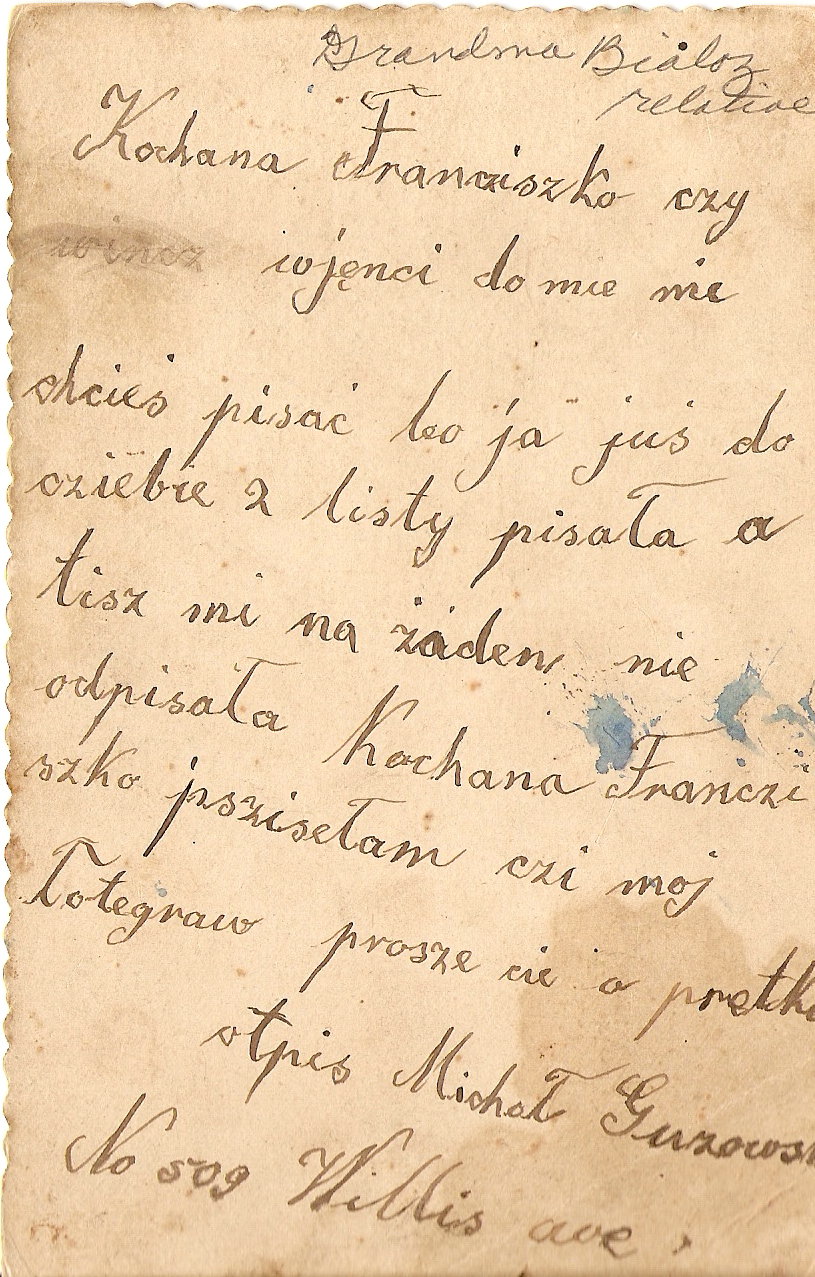 Grandma Bialoz
relative
Kochana Franciszko czy
wincz wjęnci do mie mi
chcieś pisać bo ja juś do
cziebie 2 listy pisała a
tisz mi na żaden nie
odpisała Kochana Franczi
szko pszisełam czi moj
Fotegraw prosze cie o prętk
otpis Michał Guzows
No 509 Willis ave.